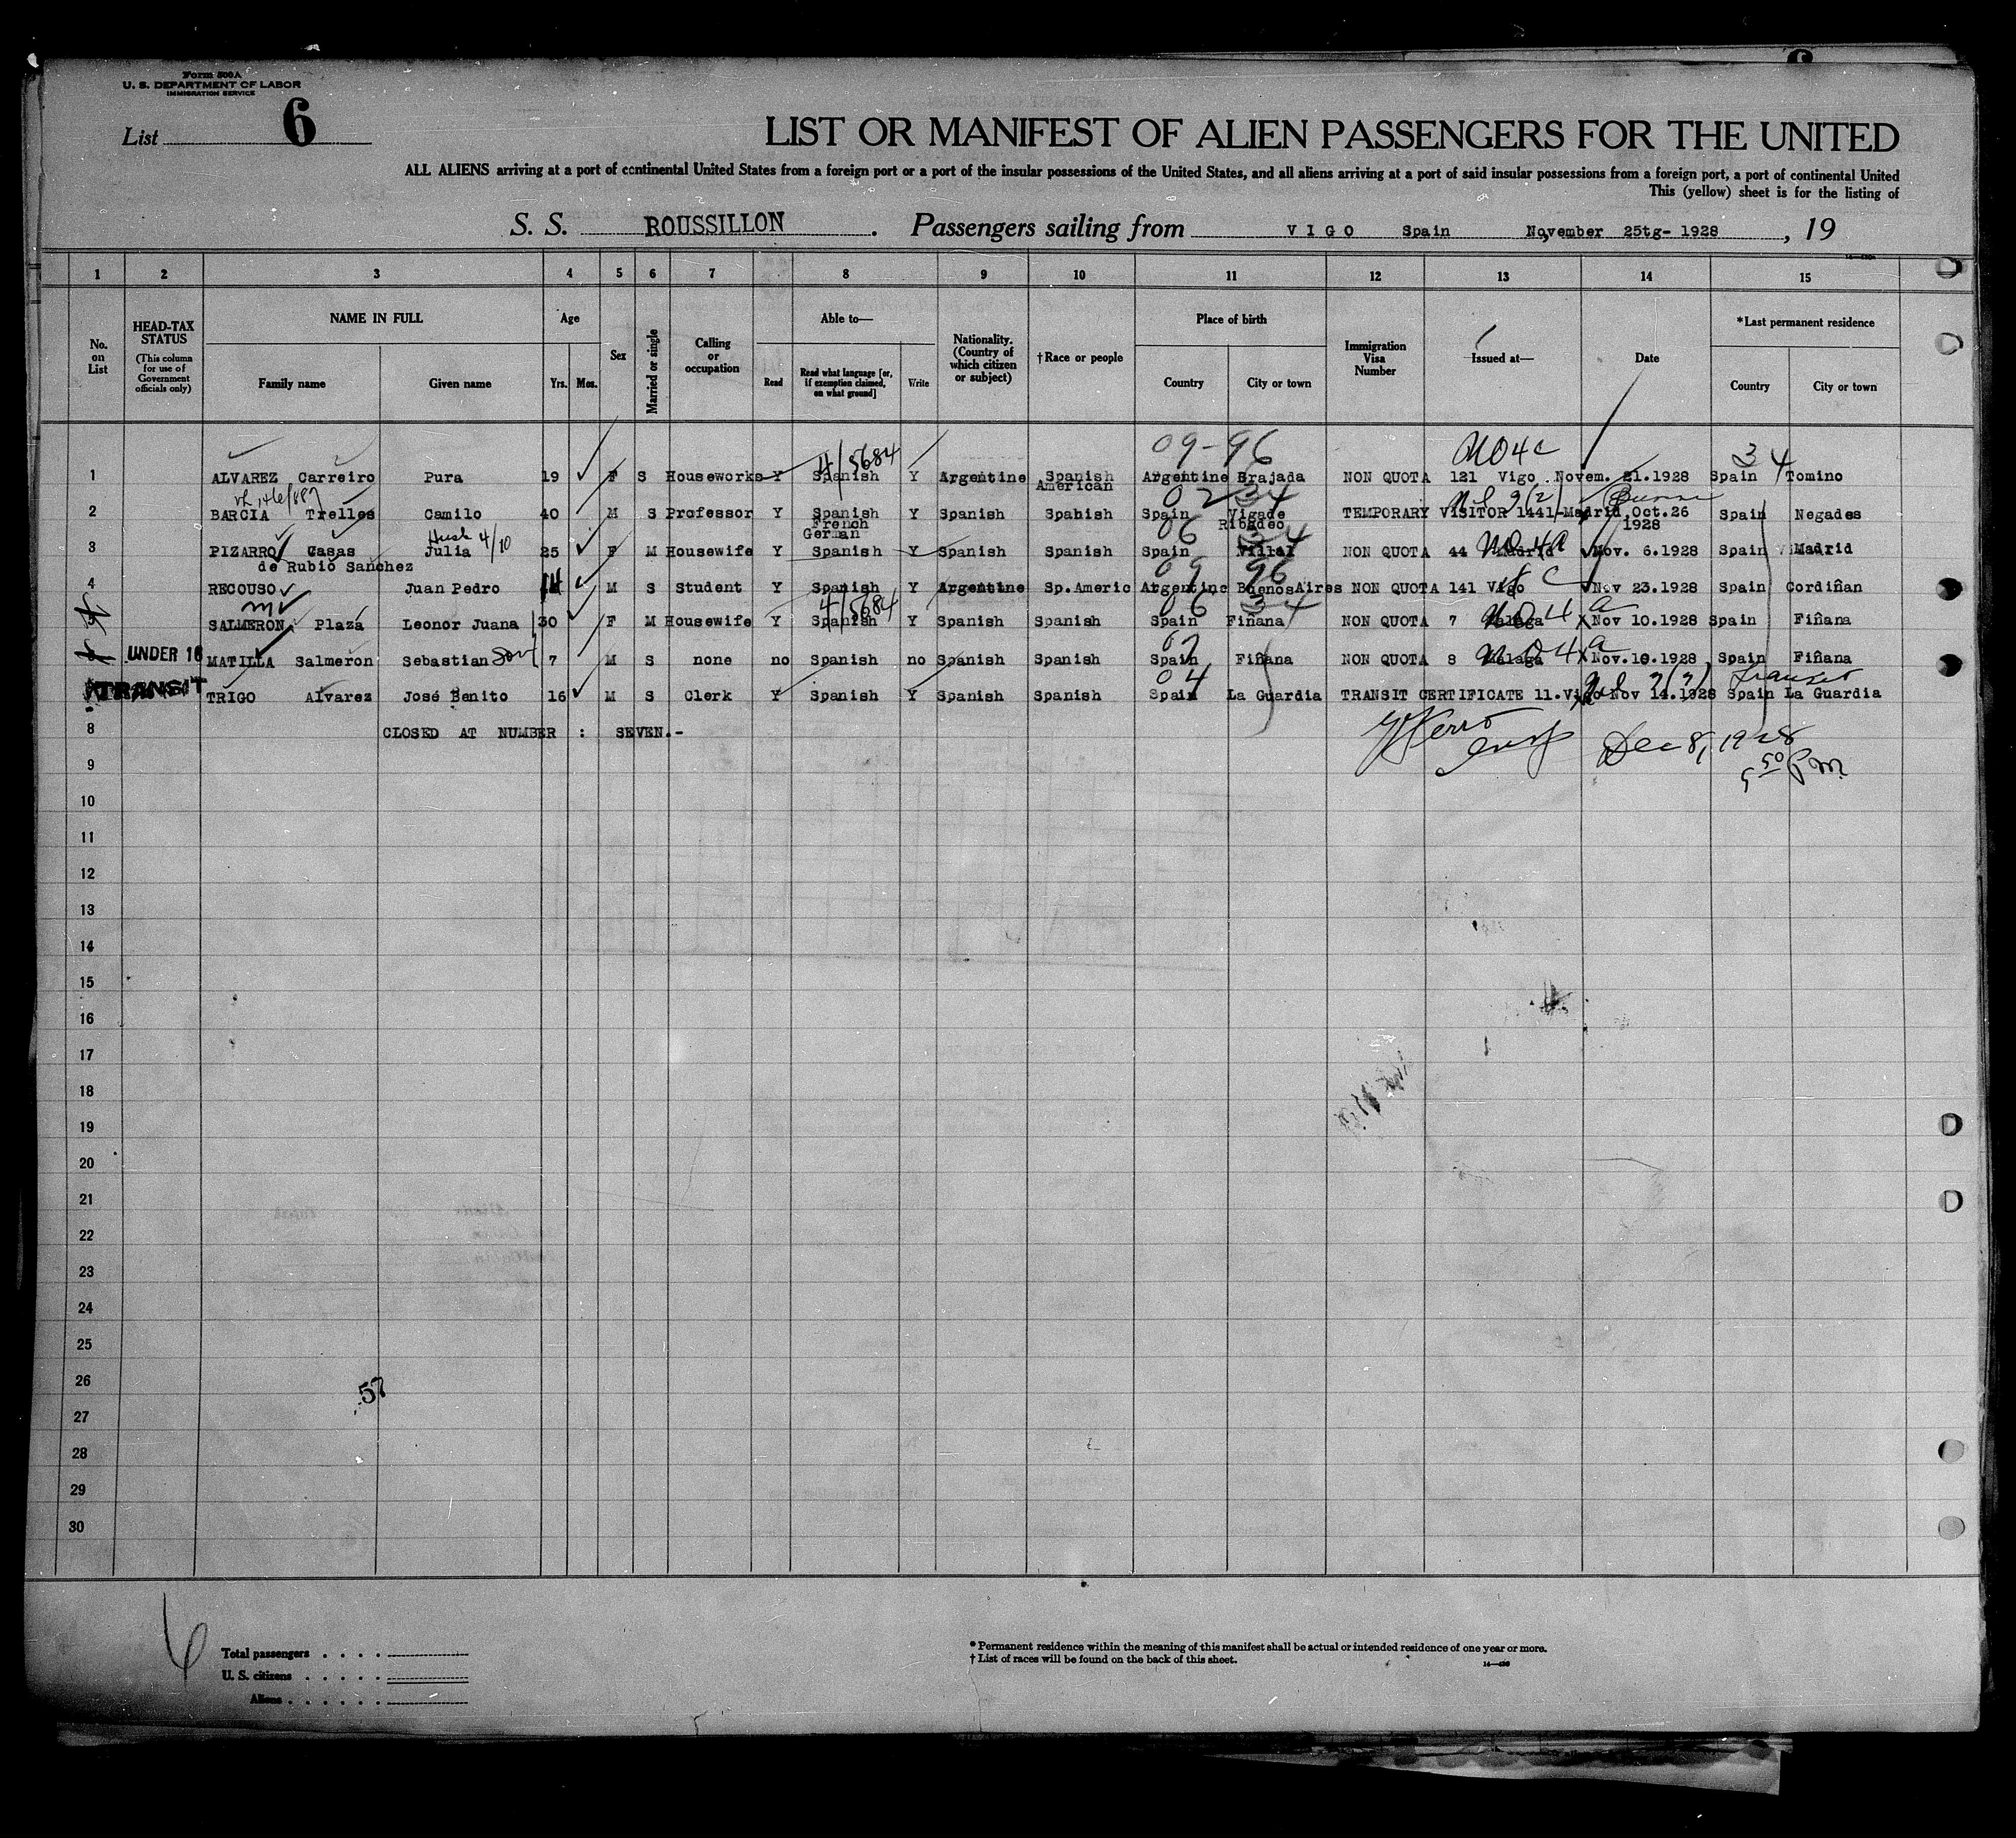 Form 500A
U. S. DEPARTMENT OF LABOR
IMMIGRATION SERVICE
List 6
LIST OR MANIFEST OF ALIEN PASSENGERS FOR THE UNITED
ALL ALIENS arriving at a port of continental United States from a foreign port or a port of the insular possessions of the United States, and all aliens arriving at a port of said insular possessions from a foreign port, a port of continental United
This (yellow) sheet is for the listing of
S. S. ROUSSILLON . Passengers sailing from VIGO Spain November 25tg- 1928 , 19
1 2 3 4 5 6 7 8 9 10 11 12 13 14 15
No. on List
HEAD-TAX STATUS (This column for use of Government officials only)
NAME IN FULL
Family name Given name
Age
Yrs. Mos.
Sex
Married or single
Calling or occupation
Able to—
Read Read what language [or, if exemption claimed, on what ground] Write
Nationality. (Country of which citizen or subject)
†Race or people
Place of birth
Country City or town
Immigration Visa Number
Issued at—
Date
*Last permanent residence
Country City or town
09-96 NO4c
4/5684 34
1 ALVAREZ Carreiro Pura 19 F S Houseworks Y Spanish Y Argentine Spanish American Argentine Brajada NON QUOTA 121 Vigo Novem. 21.1928 Spain Tomino
02 34
2 BARCIA Trelles Camilo 40 M S Professor Y Spanish French German Y Spanish Spanish Spain Vigade Ribadeo TEMPORARY VISITOR 1441-Madrid Oct.26 1928 Spain Negades
06 34 NO4a
4/10
3 PIZARRO Casas de Rubio Sanchez Julia 25 F M Housewife Y Spanish Y Spanish Spanish Spain NON QUOTA 44 Madrid Nov. 6.1928 Spain Madrid
09 96
4 RECOUSO Juan Pedro 14 M S Student Y Spanish Y Argentine Sp.Americ Argentine BuenosAires NON QUOTA 141 Vigo Nov 23.1928 Spain Cordiñan
4/5684 06 34 NO4a
SALMERON Plaza Leonor Juana 30 F M Housewife Y Spanish Y Spanish Spanish Spain Fiñana NON QUOTA 7 Malaga Nov 10.1928 Spain Fiñana
NO4a
UNDER 16 MATILLA Salmeron Sebastian Son 7 M S none no Spanish no Spanish Spanish Spain Fiñana NON QUOTA 8 Malaga Nov.10.1928 Spain Fiñana
04 Transit
TRANSIT TRIGO Alvarez José Benito 16 M S Clerk Y Spanish Y Spanish Spanish Spain La Guardia TRANSIT CERTIFICATE 11.Vigo Nov 14.1928 Spain La Guardia
8 CLOSED AT NUMBER : SEVEN.-
Dec 8, 1928
5 50 P.M.
9
10
11
12
13
14
15
16
17
18
19
20
21
22
23
24
25
26
57
27
28
29
30
6
Total passengers . . . .
U. S. citizens . . . . .
Aliens . . . . . .
* Permanent residence within the meaning of this manifest shall be actual or intended residence of one year or more.
† List of races will be found on the back of this sheet.